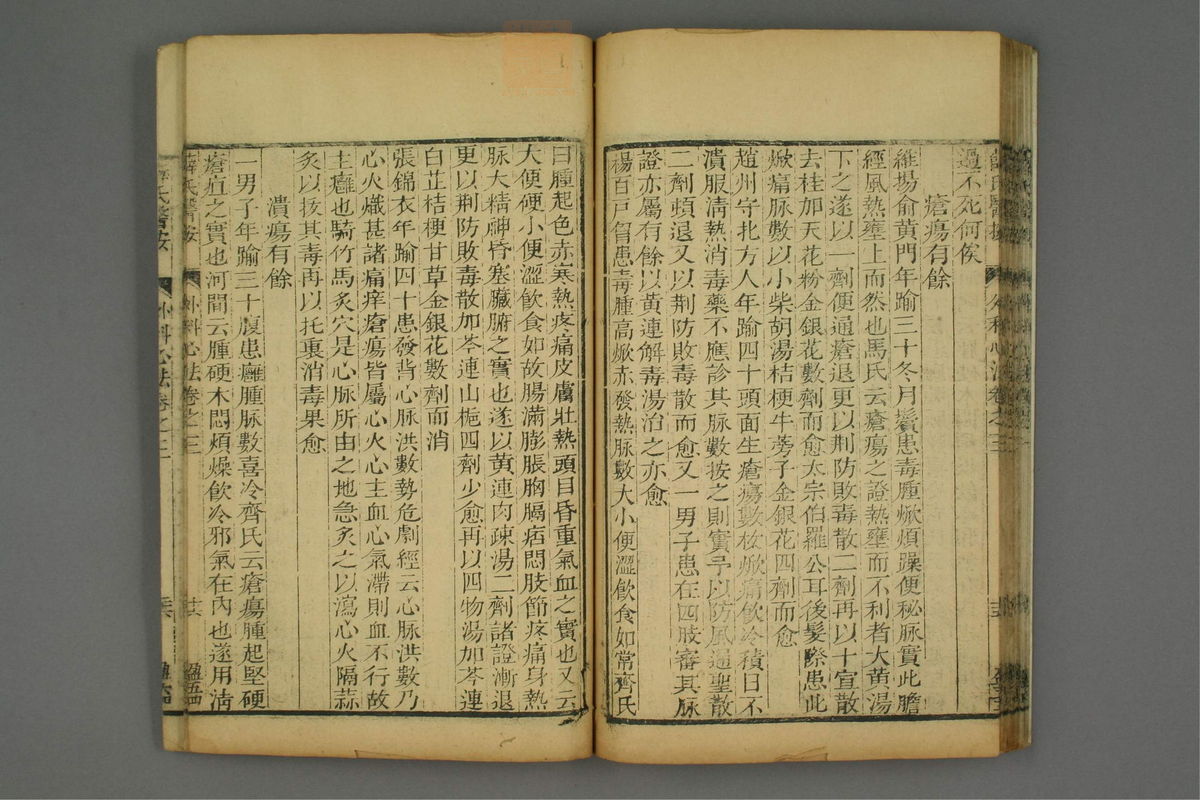 過不死何俟
瘡瘍有餘
維揚俞黃門年踰三十冬月鬢患毒腫焮煩躁便秘脉實此膽
經風熱壅上而然也馬氏云瘡瘍之證熱壅而不利者大黃湯
下之遂以一劑便通瘡退更以荆防敗毒散二劑再以十宣散
去桂加天花粉金銀花數劑而愈太宗伯羅公耳後髮際患此
焮痛脉數以小柴胡湯桔梗牛蒡子金銀花四劑而愈
趙州守北方人年踰四十頭面生瘡瘍數枚焮痛飲冷積日不
潰服清熱消毒藥不應診其脉數按之則實予以防風通聖散
二劑頓退又以荆防敗毒散而愈又一男子患在四肢審其脉
證亦屬有餘以黃連解毒湯治之亦愈
楊百戶胷患毒腫高焮赤發熱脉數大小便澀飲食如常齊氏
曰腫起色赤寒熱疼痛皮膚壯熱頭目昏重氣血之實也又云
大便硬小便澀飲食如故腸滿膨脹胸膈痞悶肢節疼痛身熱
脉大精神昏塞臟腑之實也遂以黃連內疎湯二劑諸證漸退
更以荆防敗毒散加芩連山梔四劑少愈再以四物湯加芩連
白芷桔梗甘草金銀花數劑而消
張錦衣年踰四十患發背心脉洪數勢危劇經云心脉洪數乃
心火熾甚諸痛痒瘡瘍皆屬心火心主血心氣滯則血不行故
主癰也騎竹馬灸穴是心脉所由之地急灸之以瀉心火隔蒜
灸以拔其毒再以托裏消毒果愈
潰瘍有餘
一男子年踰三十腹患癰腫脉數喜冷齊氏云瘡瘍腫起堅硬
瘡疽之實也河間云腫硬木悶煩燥飲冷邪氣在內也遂用淸
薛氏醫案 外科心法卷之三